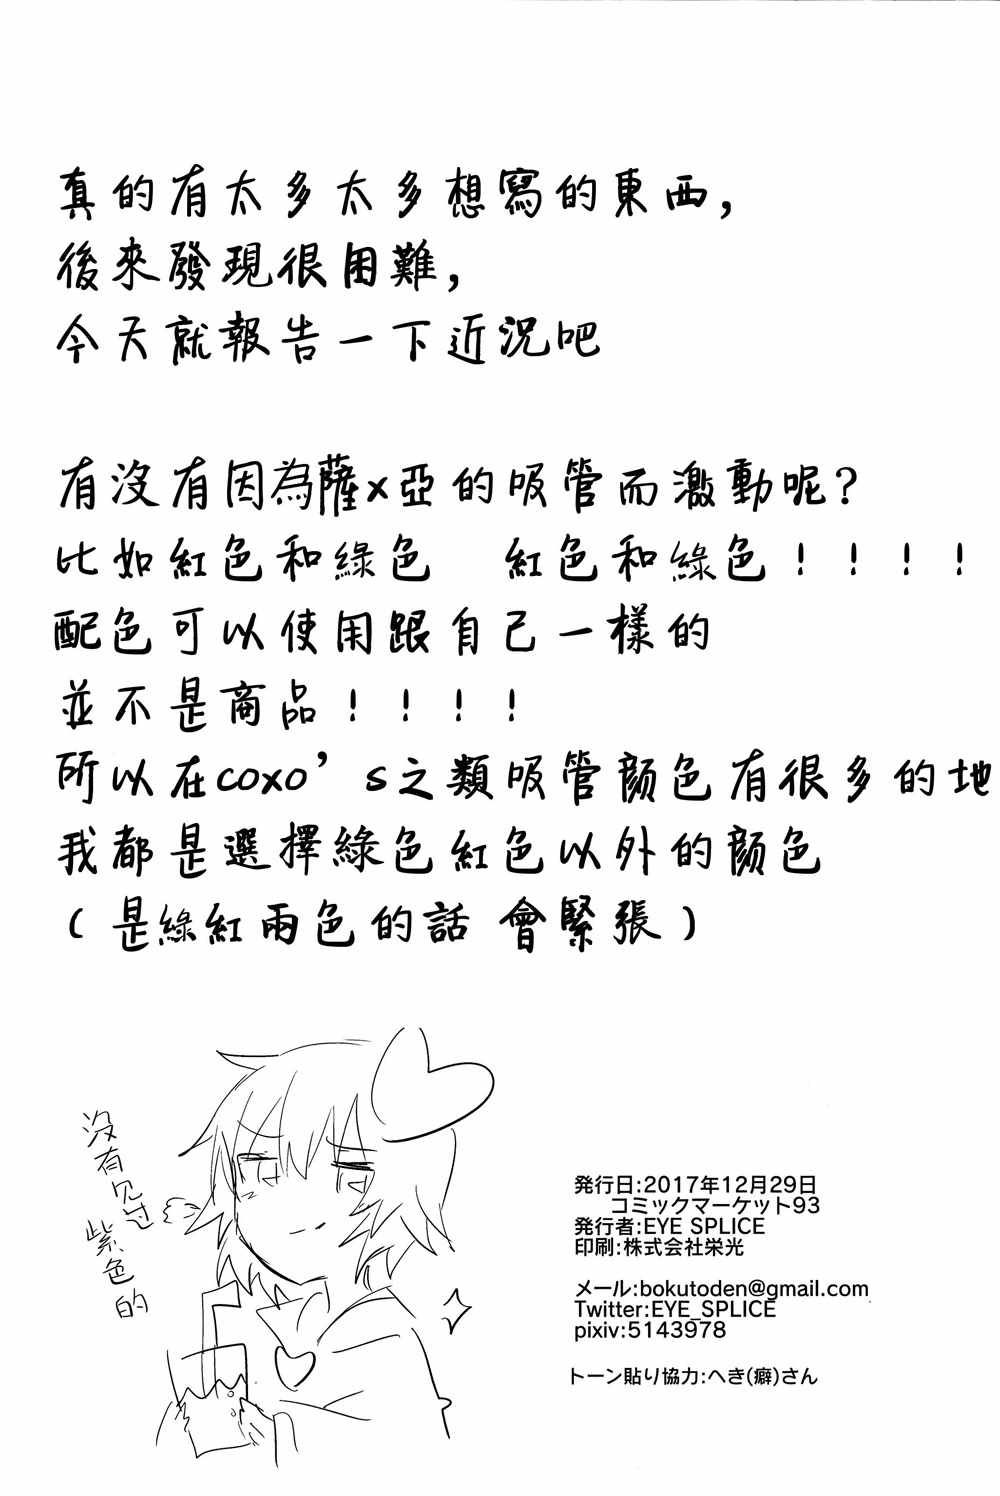 真的有太多太多想寫的東西,
後來發現很困難,
今天就報告一下近況吧
有沒有因為薩x亞的吸管而激動呢?
比如紅色和綠色　紅色和綠色！！！！
配色可以使用跟自己一樣的
並不是商品！！！！
所以在coxo’s之類吸管顔色有很多的地
我都是選擇綠色紅色以外的顔色
（是綠紅兩色的話 會緊張）
沒有见过
紫色的
発行日:2017年12月29日
コミックマーケット93
発行者:EYE SPLICE
印刷:株式会社栄光
メール:bokutoden@gmail.com
Twitter:EYE_SPLICE
pixiv:5143978
トーン貼り協力:へき(癖)さん